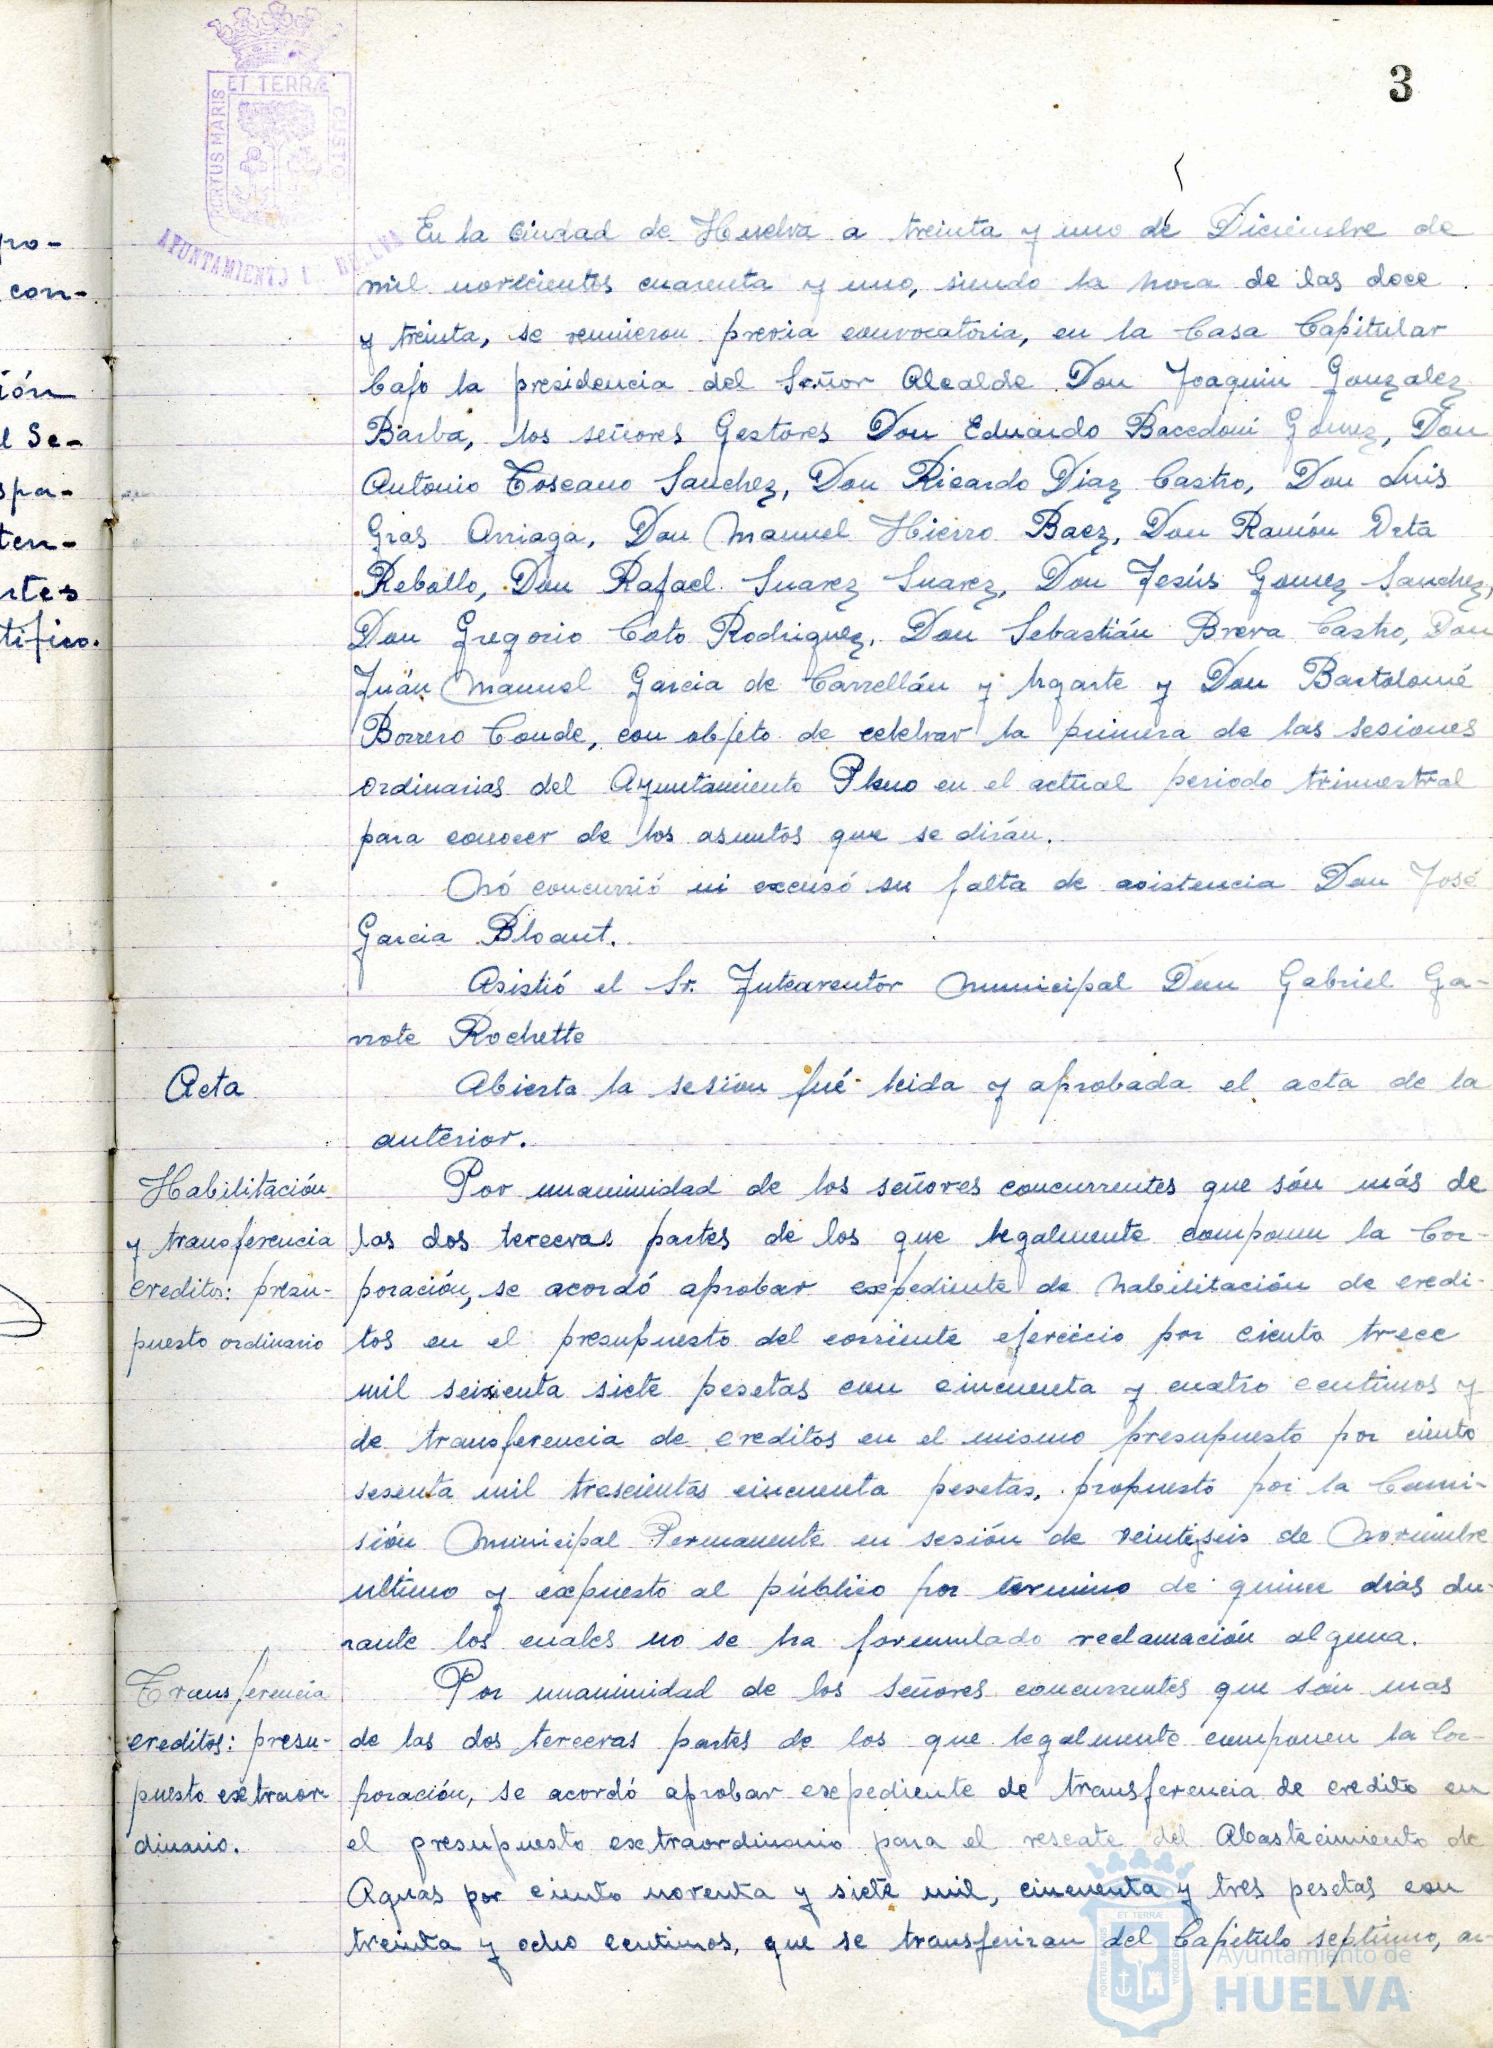 3
ET TERRÆ
PORTUS MARIS
CUSTO
AYUNTAMIENTO HUELVA
pro-
con-
ión
l Se-
spa-
ten-
rtes
tífico.
En la Ciudad de Huelva a treinta y uno de Diciembre de
mil novecientos cuarenta y uno, siendo la hora de las doce
y treinta, se reunieron previa convocatoria, en la Casa Capitular
bajo la presidencia del Señor Alcalde Don Joaquin Gonzalez
Barba, los señores Gestores Don Eduardo Bacedoni Gomez, Don
Antonio Toscano Sanchez, Don Ricardo Diaz Castro, Don Luis
Gras Arriaga, Don Manuel Hierro Baez, Don Ramón Orta
Rebollo, Don Rafael Suarez Suarez, Don Jesús Gomez Sanchez,
Don Gregorio Coto Rodriguez, Don Sebastián Breva Castro, Don
Juán Manuel Garcia de Carrellán y Ugarte y Don Bartolomé
Borrero Conde, con objeto de celebrar la primera de las sesiones
ordinarias del Ayuntamiento Pleno en el actual periodo trimestral
para conocer de los asuntos que se dirán.
Nó concurrió ni excusó su falta de asistencia Don José
Garcia Bloant.
Asistió el Sr. Interventor Municipal Don Gabriel Ga-
rrote Rochette
Acta
Abierta la sesión fué leida y aprobada el acta de la
anterior.
Habilitación
y transferencia
creditos: presu-
puesto ordinario
Por unanimidad de los señores concurrentes que són más de
las dos terceras partes de los que legalmente componen la Cor-
poración, se acordó aprobar expediente de habilitación de credi-
tos en el presupuesto del corriente ejercicio por ciento trece
mil seisienta siete pesetas con cincuenta y cuatro centimos y
de transferencia de creditos en el mismo presupuesto por ciento
sesenta mil trescientas cincuenta pesetas, propuesto por la Comi-
sión Municipal Permanente en sesión de veintiseis de Noviembre
ultimo y expuesto al público por termino de quince dias du-
rante los cuales no se ha formulado reclamación alguna.
Transferencia
creditos: presu-
puesto extraor-
dinario.
Por unanimidad de los señores concurrentes que són mas
de las dos terceras partes de los que legalmente componen la Cor-
poración, se acordó aprobar expediente de transferencia de credito en
el presupuesto extraordinario para el rescate del Abastecimiento de
Aguas por ciento noventa y siete mil, cincuenta y tres pesetas con
treinta y ocho centimos, que se transferiran del Capítulo septimo, ar-
Ayuntamiento de
HUELVA